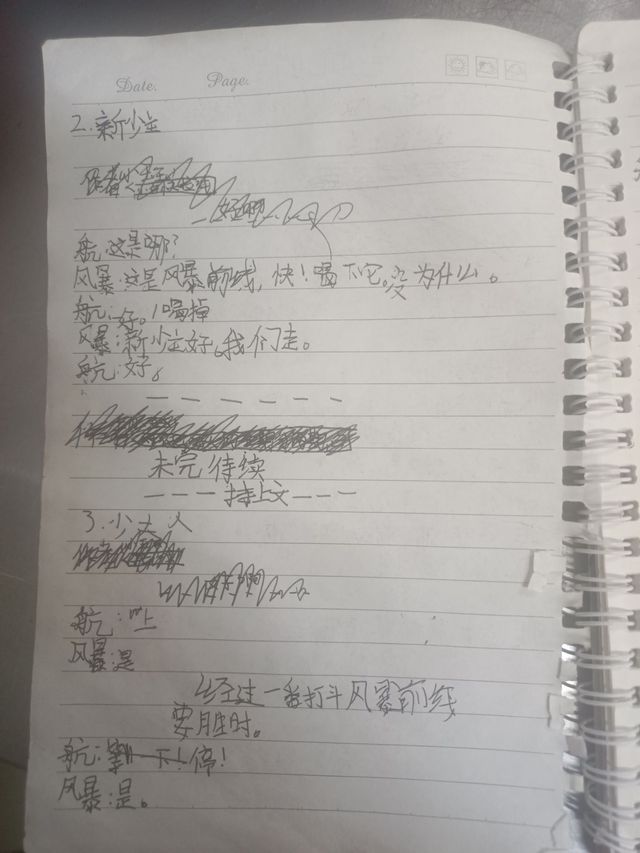 Date. Page.
2.新少主
航:这是哪?
风暴:这是风暴前线,快!喝下它。没为什么。
航:好。喝掉
风暴:新少主好。我们走。
航:好。
— — — — — —
未完待续
— — — 接上文 — — —
3.少丈人
航:上
风暴:是
经过一番打斗风暴前线
要胜时。
航:停!
风暴:是。